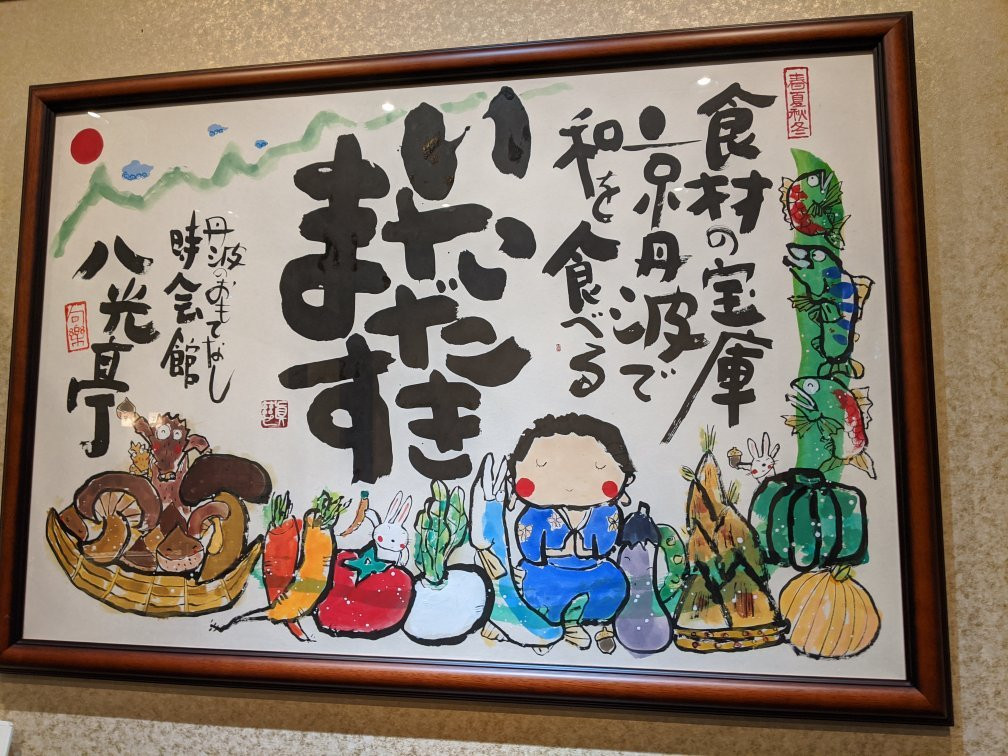 春夏秋冬
食材の宝庫
京丹波で
和を食べる
いただき
ます
丹波のおもてなし
時会館
八光亭